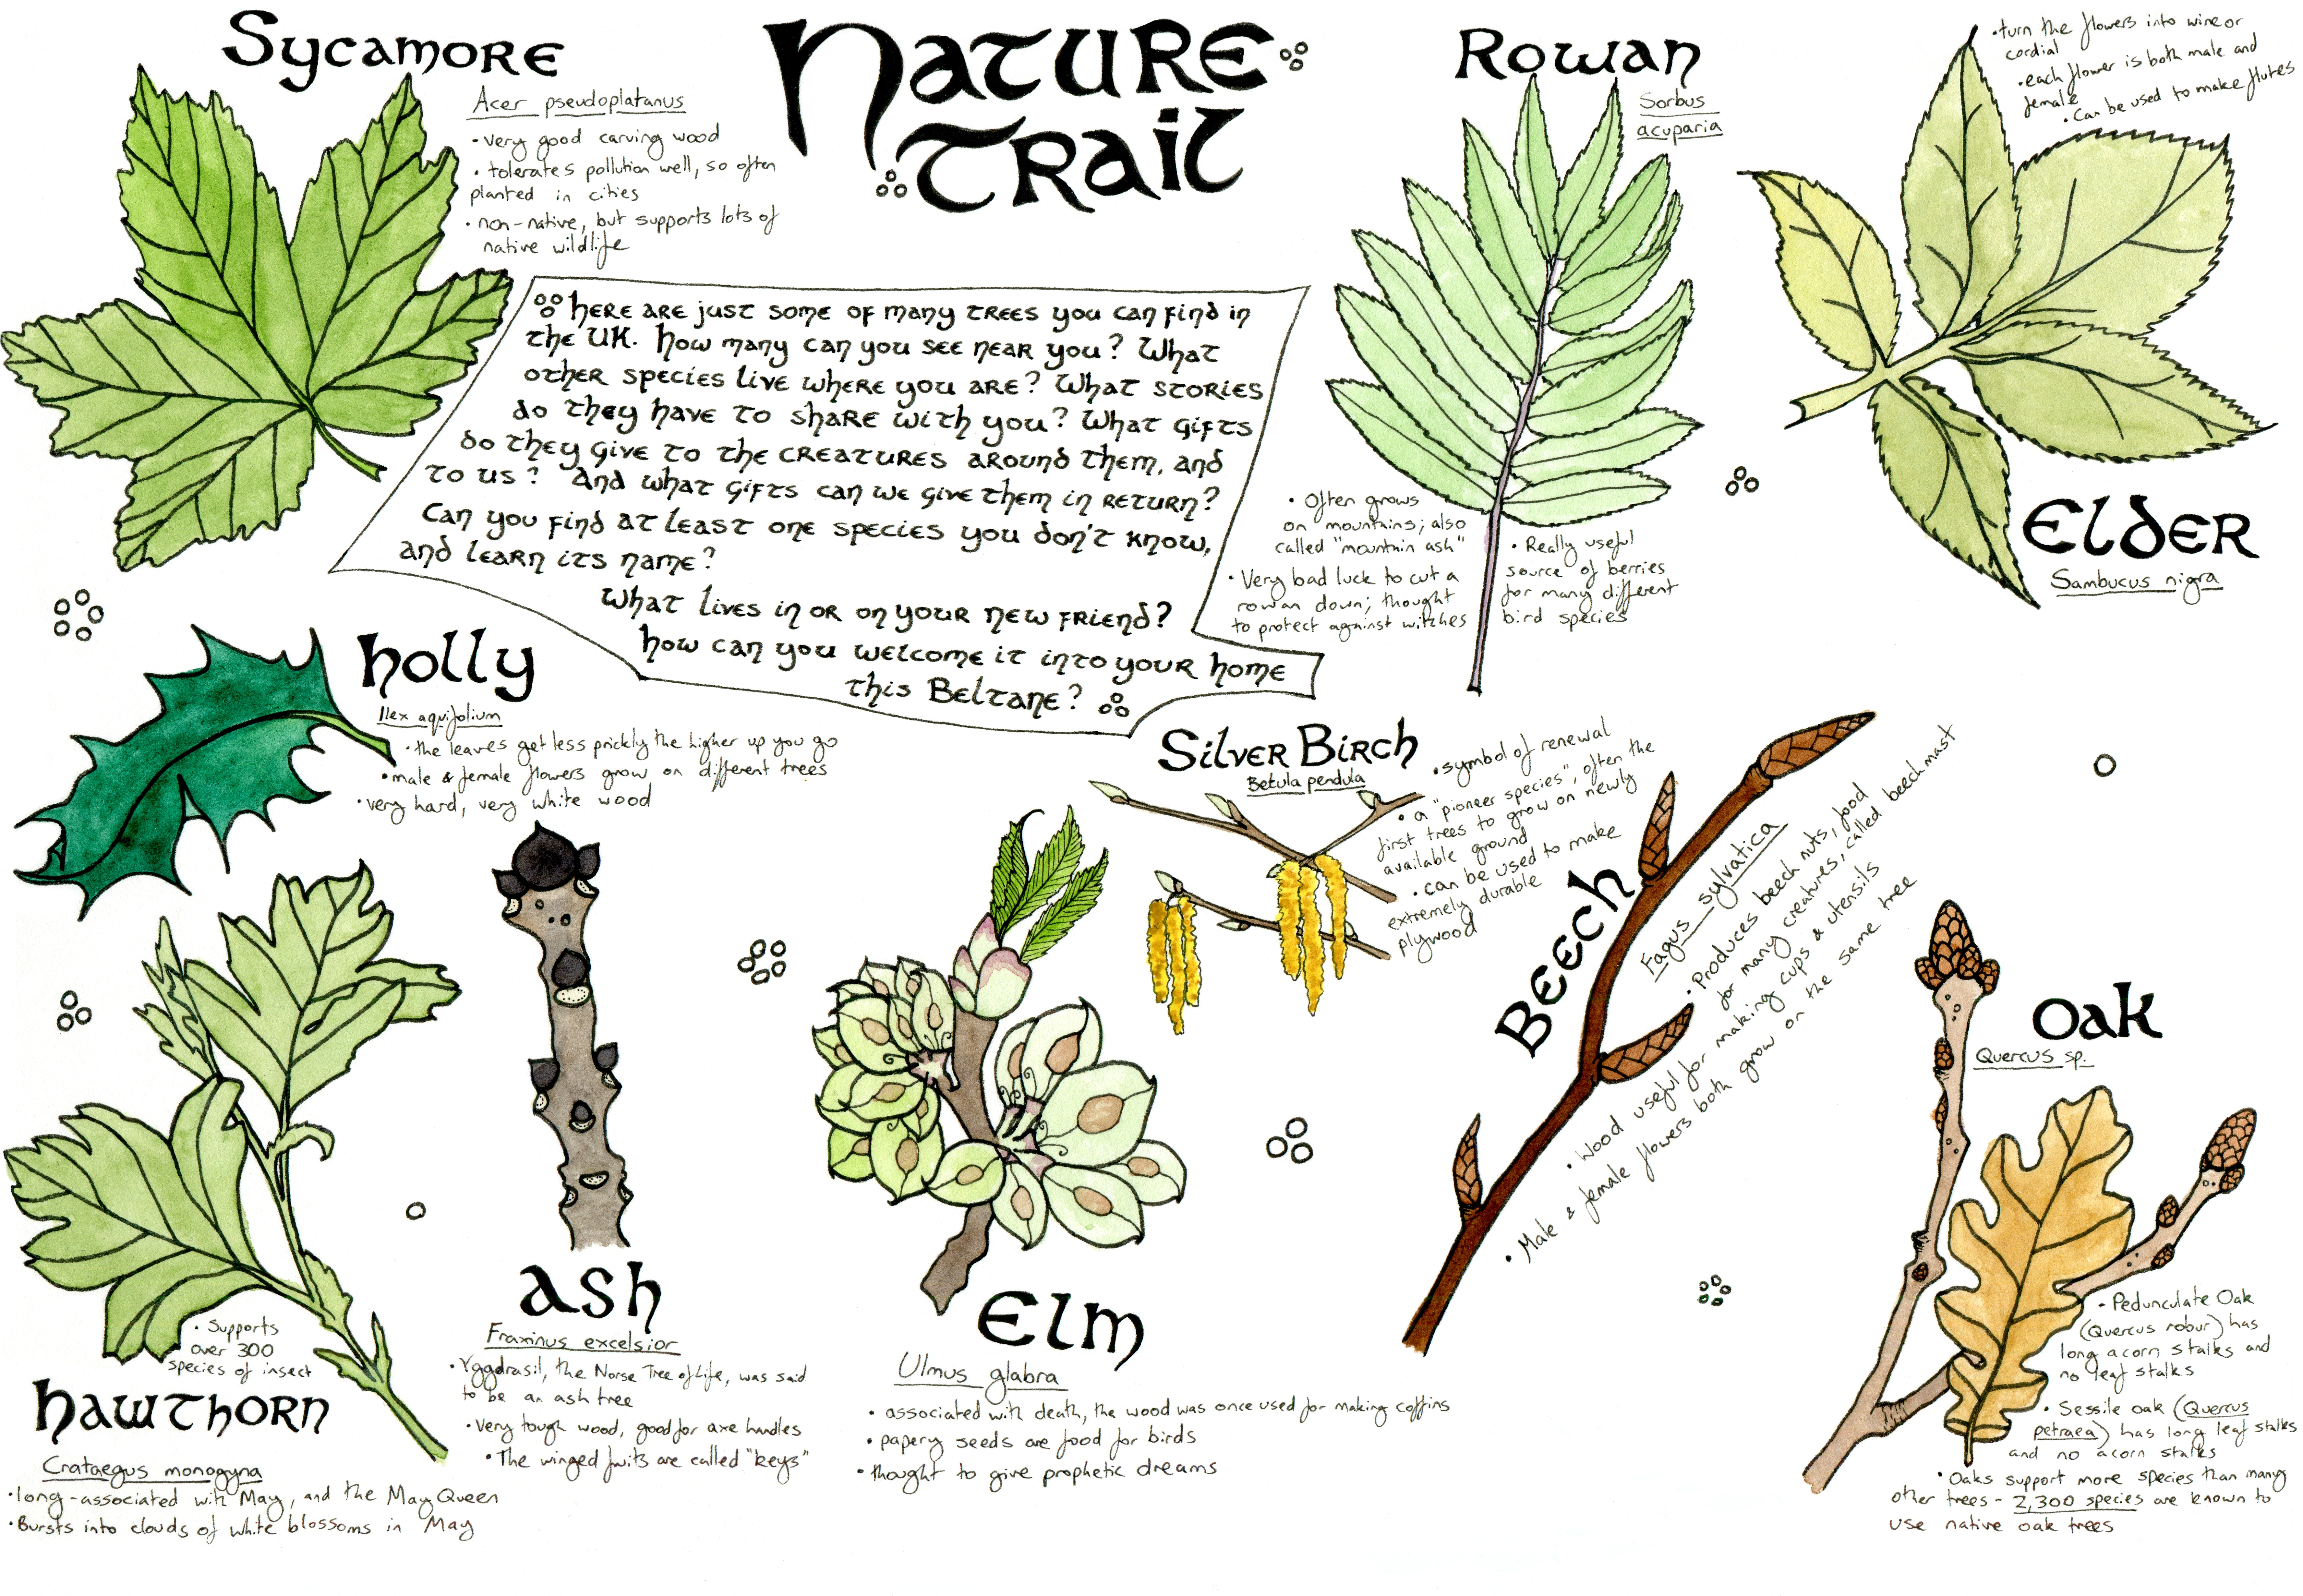 Sycamore
Acer pseudoplatanus
• very good carving wood
• tolerates pollution well, so often
planted in cities
• non-native, but supports lots of
native wildlife
Nature
Trail
Rowan
Sorbus
acuparia
• Often grows
on mountains; also
called "mountain ash"
• Very bad luck to cut a
rowan down; thought
to protect against witches
• Really useful
source of berries
for many different
bird species
• turn the flowers into wine or
cordial
• each flower is both male and
female
• Can be used to make flutes
Elder
Sambucus nigra
Here are just some of many trees you can find in
the UK. How many can you see near you? What
other species live where you are? What stories
do they have to share with you? What gifts
do they give to the creatures around them, and
to us? And what gifts can we give them in return?
Can you find at least one species you don't know,
and learn its name?
What lives in or on your new friend?
How can you welcome it into your home
this Beltane?
Holly
Ilex aquifolium
• the leaves get less prickly the higher up you go
• male & female flowers grow on different trees
• very hard, very white wood
Silver Birch
Betula pendula
• symbol of renewal
• a "pioneer species", often the
first trees to grow on newly
available ground
• can be used to make
extremely durable
plywood
Beech
Fagus sylvatica
• Produces beech nuts, food
for many creatures, called beechmast
• Wood useful for making cups & utensils
• Male & female flowers both grow on the same tree
Oak
Quercus sp.
• Pedunculate Oak
(Quercus robur) has
long acorn stalks and
no leaf stalks
• Sessile oak (Quercus
petraea) has long leaf stalks
and no acorn stalks
• Oaks support more species than many
other trees - 2,300 species are known to
use native oak trees
• Supports
over 300
species of insect
Hawthorn
Crataegus monogyna
• long-associated with May, and the May Queen
• Bursts into clouds of white blossoms in May
Ash
Fraxinus excelsior
• Yggdrasil, the Norse Tree of Life, was said
to be an ash tree
• Very tough wood, good for axe handles
• The winged fruits are called "keys"
Elm
Ulmus glabra
• associated with death, the wood was once used for making coffins
• papery seeds are food for birds
• thought to give prophetic dreams